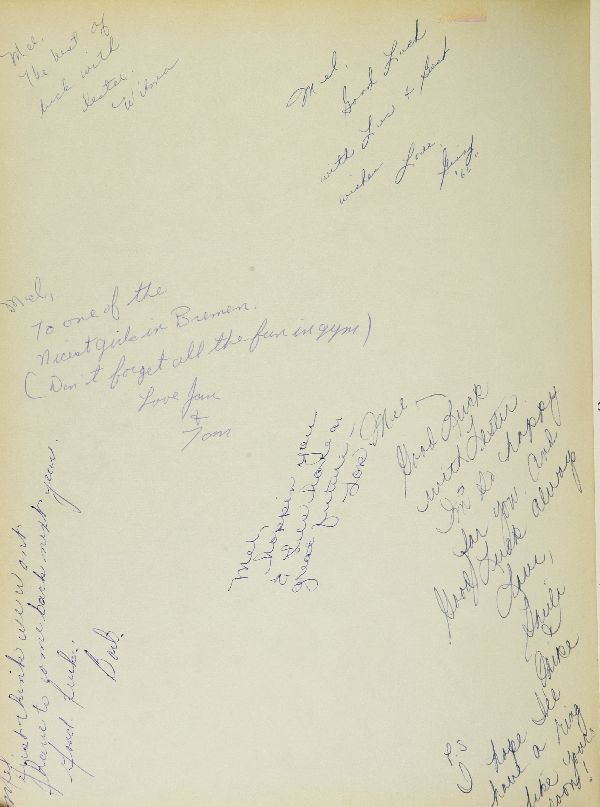 Mel,
The best of
luck with
Lester.
Wilma
Mel,
Good Luck
with Luv & Best
wishes Love
'66"
Mel,
To one of the
Nicest girls in Bremen.
(Don't forget all the fun in gym)
Love Jan
&
Tom
Mel,
Hoppin You
& Les have a
great future!
Mel —
Good Luck
with Lester.
I'm so happy
for you. And
Good Luck always
Love,
&
Mike
P.S.
hope I'll
have a ring
like your
soon!
Mel,
Just think we won't
have to come back next year.
Good luck.
Barb.